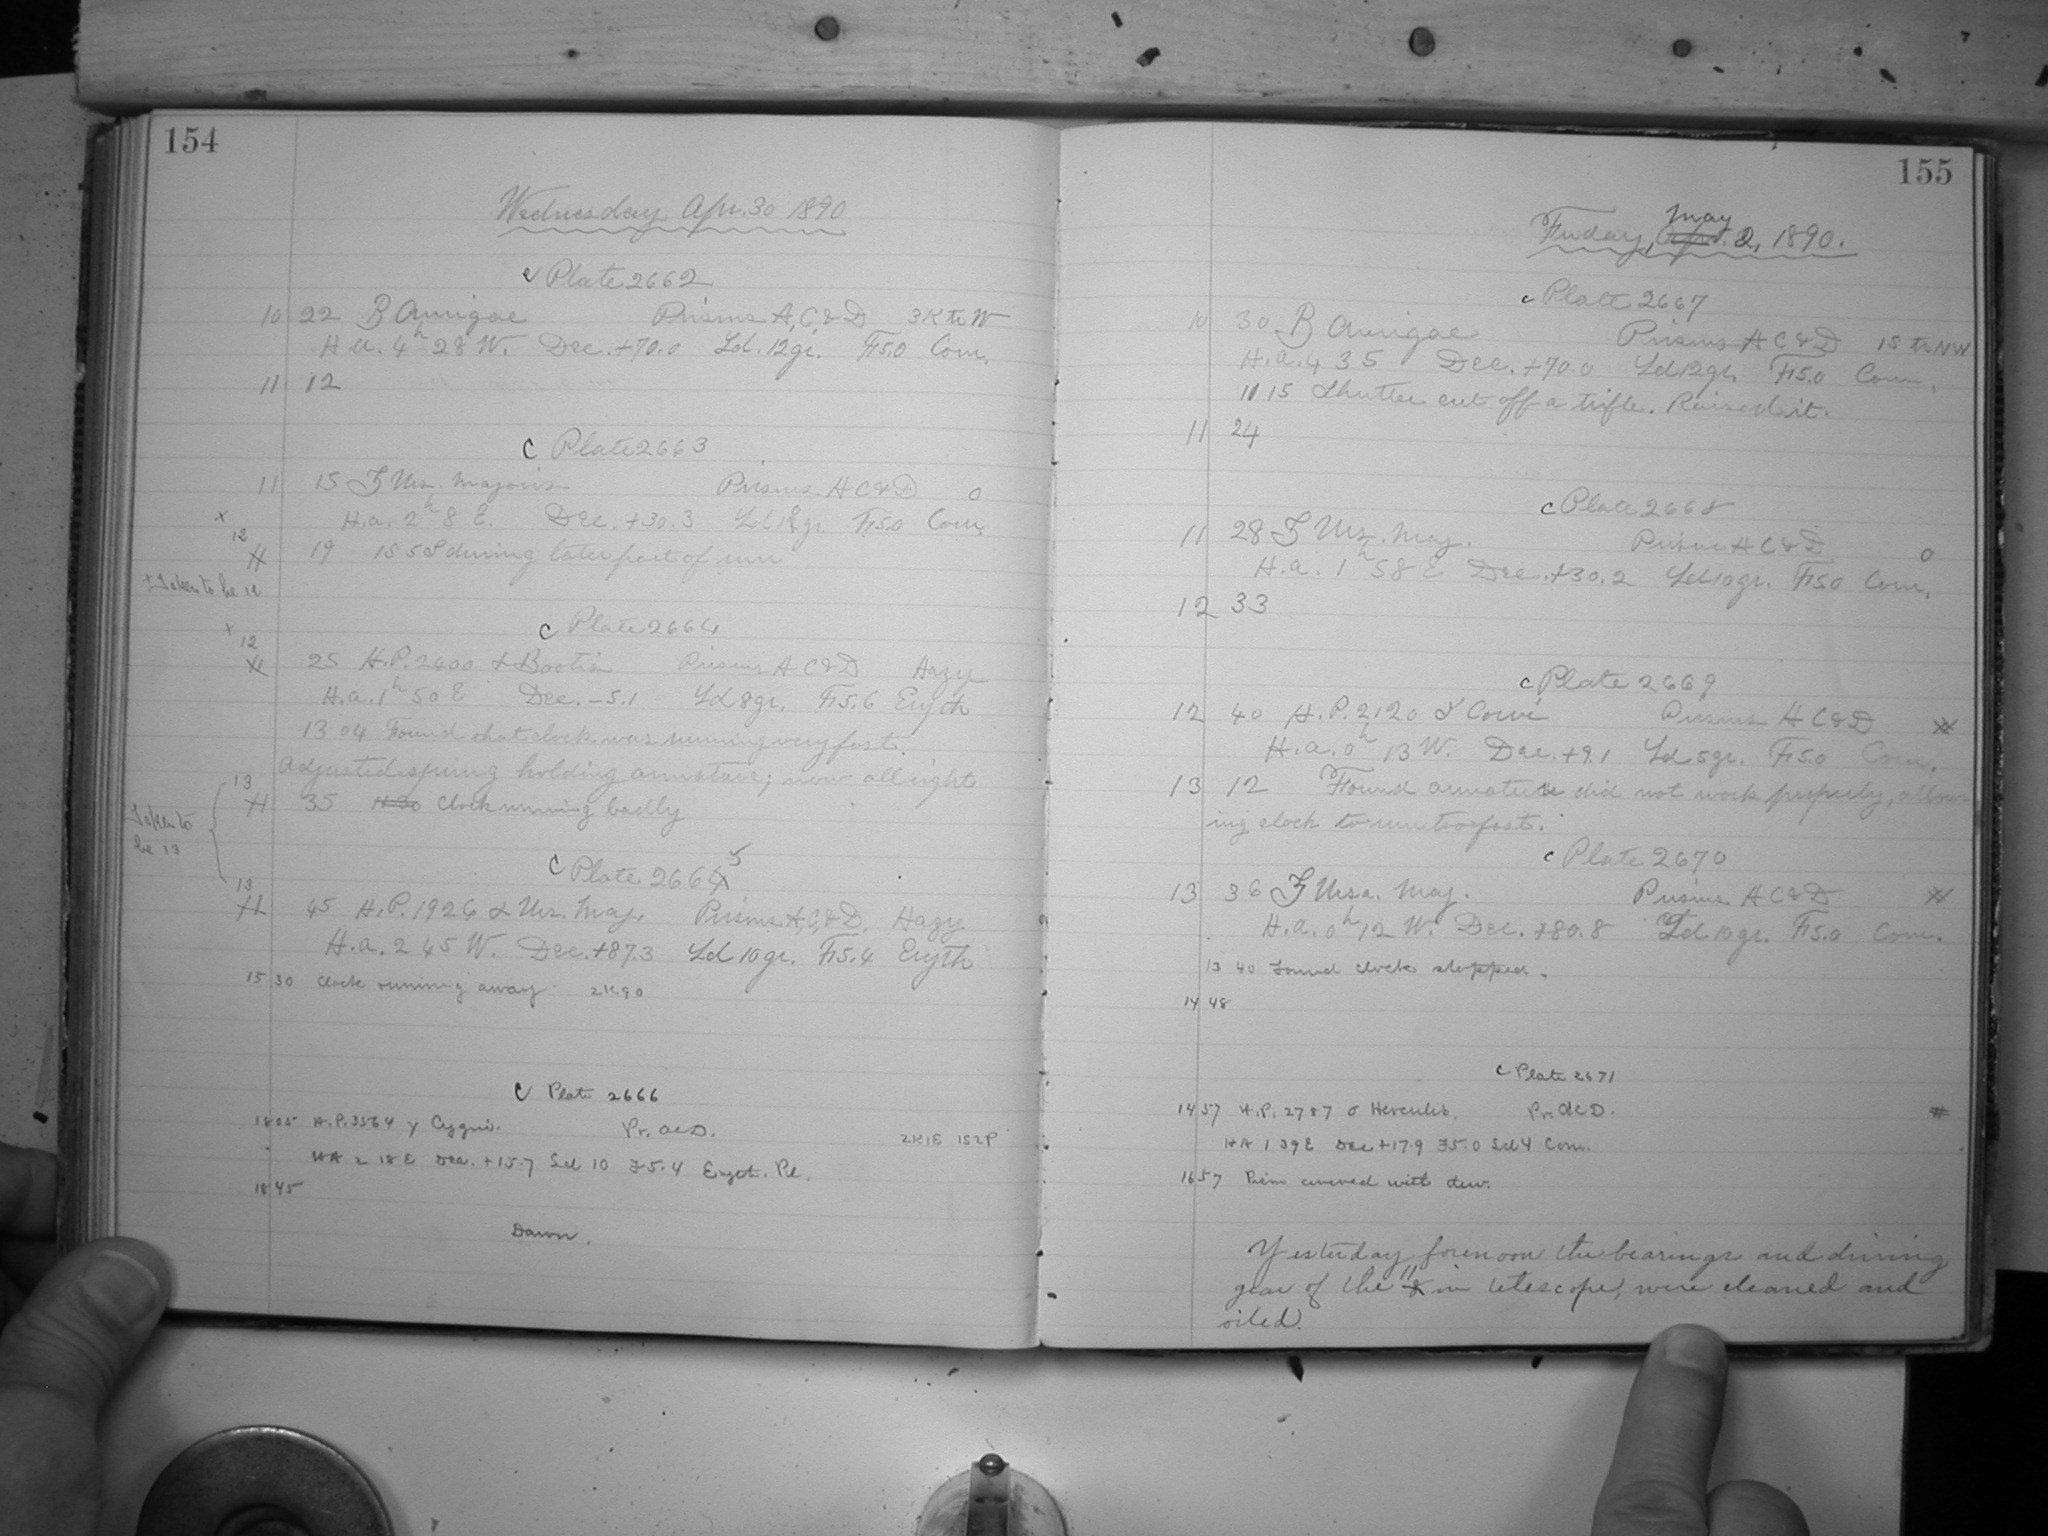 154
Wednesday Apr. 30 1890
c Plate 2662
10 22 β Aurigae Prisms A, C, & D 3K to W
H.a. 4h 28 W. Dec. +70.0 Ld. 12gr. F 5.0 Com.
11 12
c Plate 2663
11 15 ζ Urs. Majoris Prisms A C & D 0
H.a. 2h 8 E. Dec. +30.3 Ld 12gr. F 5.0 Com.
x 12
11 19 1S 5S during later part of run
+ Taken to be 12
c Plate 2664
x 12
11 25 H.P. 2400 Bootis Prisms A C & D Hazy
H.a. 1h 50 E Dec. -5.1 Ld 8gr. F 5.6 Eryth
13 04 Found that clock was running very fast.
Adjusted spring holding armature; now all right
13
11 35 11 30 Clock running badly
Taken to
be 13
c Plate 2664 5
13
11 45 H.P. 1926 α Urs. Maj. Prisms A, C, & D. Hazy
H.a. 2 45 W. Dec. +87.3 Ld 10gr. F 5.4 Eryth
15 30 Clock running away
c Plate 2666
18 05 H.P. 3564 γ Cygni. Pr. ACD. 2K1E 1S2P
HA 2 18 E Dec. +15.7 Ld 10 F 5.4 Eryth. Pl.
18 45
Dawn.
155
May
Friday, Apr. 2, 1890.
c Plate 2667
10 30 β Aurigae Prisms A C & D 1S to NW
H.a. 4 35 Dec. +70.0 Ld 12gr. F 5.0 Com.
11 15 Shutter cut off a trifle. Raised it.
11 24
c Plate 2668
11 28 ζ Urs. Maj. Prisms A C & D 0
H.a. 1h 58 E Dec. +30.2 Ld 10gr. F 5.0 Com.
12 33
c Plate 2669
12 40 H.P. 2120 Corvi Prisms A C & D
H.a. 0h 13 W. Dec. +9.1 Ld 5gr. F 5.0 Com.
13 12 Found armature did not work properly, allow-
ing clock to run too fast.
c Plate 2670
13 36 ζ Ursa. Maj. Prisms A C & D
H.a. 0h 12 W. Dec. +80.8 Ld 10gr. F 5.0 Com.
13 40 Found clock stopped.
14 48
c Plate 2671
14 57 H.P. 2787 o Herculis. Pr. ACD.
HA 1 39 E Dec +17.9 F5.0 Ld 4 Com.
16 57 Prism covered with dew.
Yesterday forenoon the bearings and driving
gear of the 11 in telescope, were cleaned and
oiled.